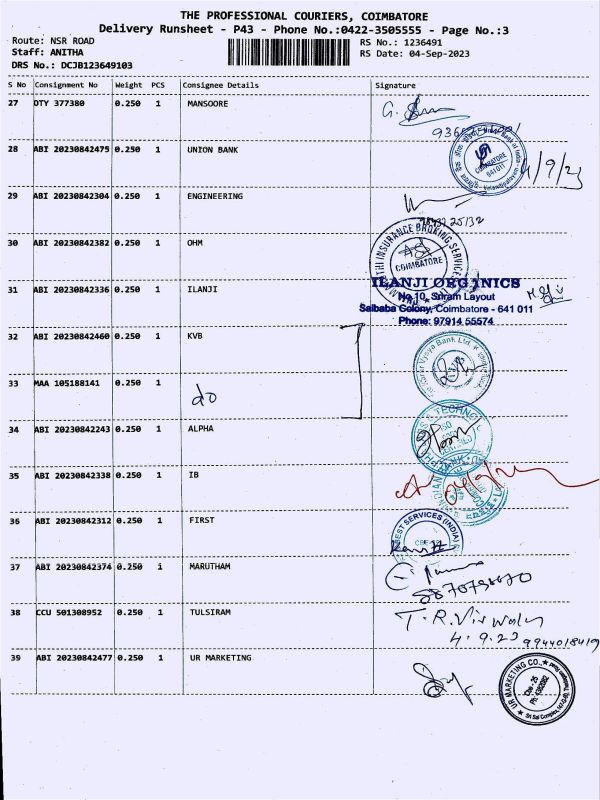 THE PROFESSIONAL COURIERS, COIMBATORE
Delivery Runsheet - P43 - Phone No.:0422-3505555 - Page No.:3
Route: NSR ROAD
RS No.: 1236491
Staff: ANITHA
RS Date: 04-Sep-2023
DRS No.: DCJB123649103
S No Consignment No Weight PCS Consignee Details Signature
27 OTY 377380 0.250 1 MANSOORE
28 ABI 20230842475 0.250 1 UNION BANK
COIMBATORE
641 011
4/9/23
29 ABI 20230842304 0.250 1 ENGINEERING
30 ABI 20230842382 0.250 1 OHM
INSURANCE BROKING SERVICE
COIMBATORE
31 ABI 20230842336 0.250 1 ILANJI
ILANJI ORGANICS
No.10, Sriram Layout
Saibaba Colony, Coimbatore - 641 011
Phone: 97914 55574
32 ABI 20230842460 0.250 1 KVB
Vysya Bank Ltd.
33 MAA 105188141 0.250 1
do
34 ABI 20230842243 0.250 1 ALPHA
35 ABI 20230842338 0.250 1 IB
36 ABI 20230842312 0.250 1 FIRST
BEST SERVICES (INDIA)
37 ABI 20230842374 0.250 1 MARUTHAM
38 CCU 501308952 0.250 1 TULSIRAM
4.9.23 9944018419
39 ABI 20230842477 0.250 1 UR MARKETING
UR MARKETING CO.,
Cbe - 25